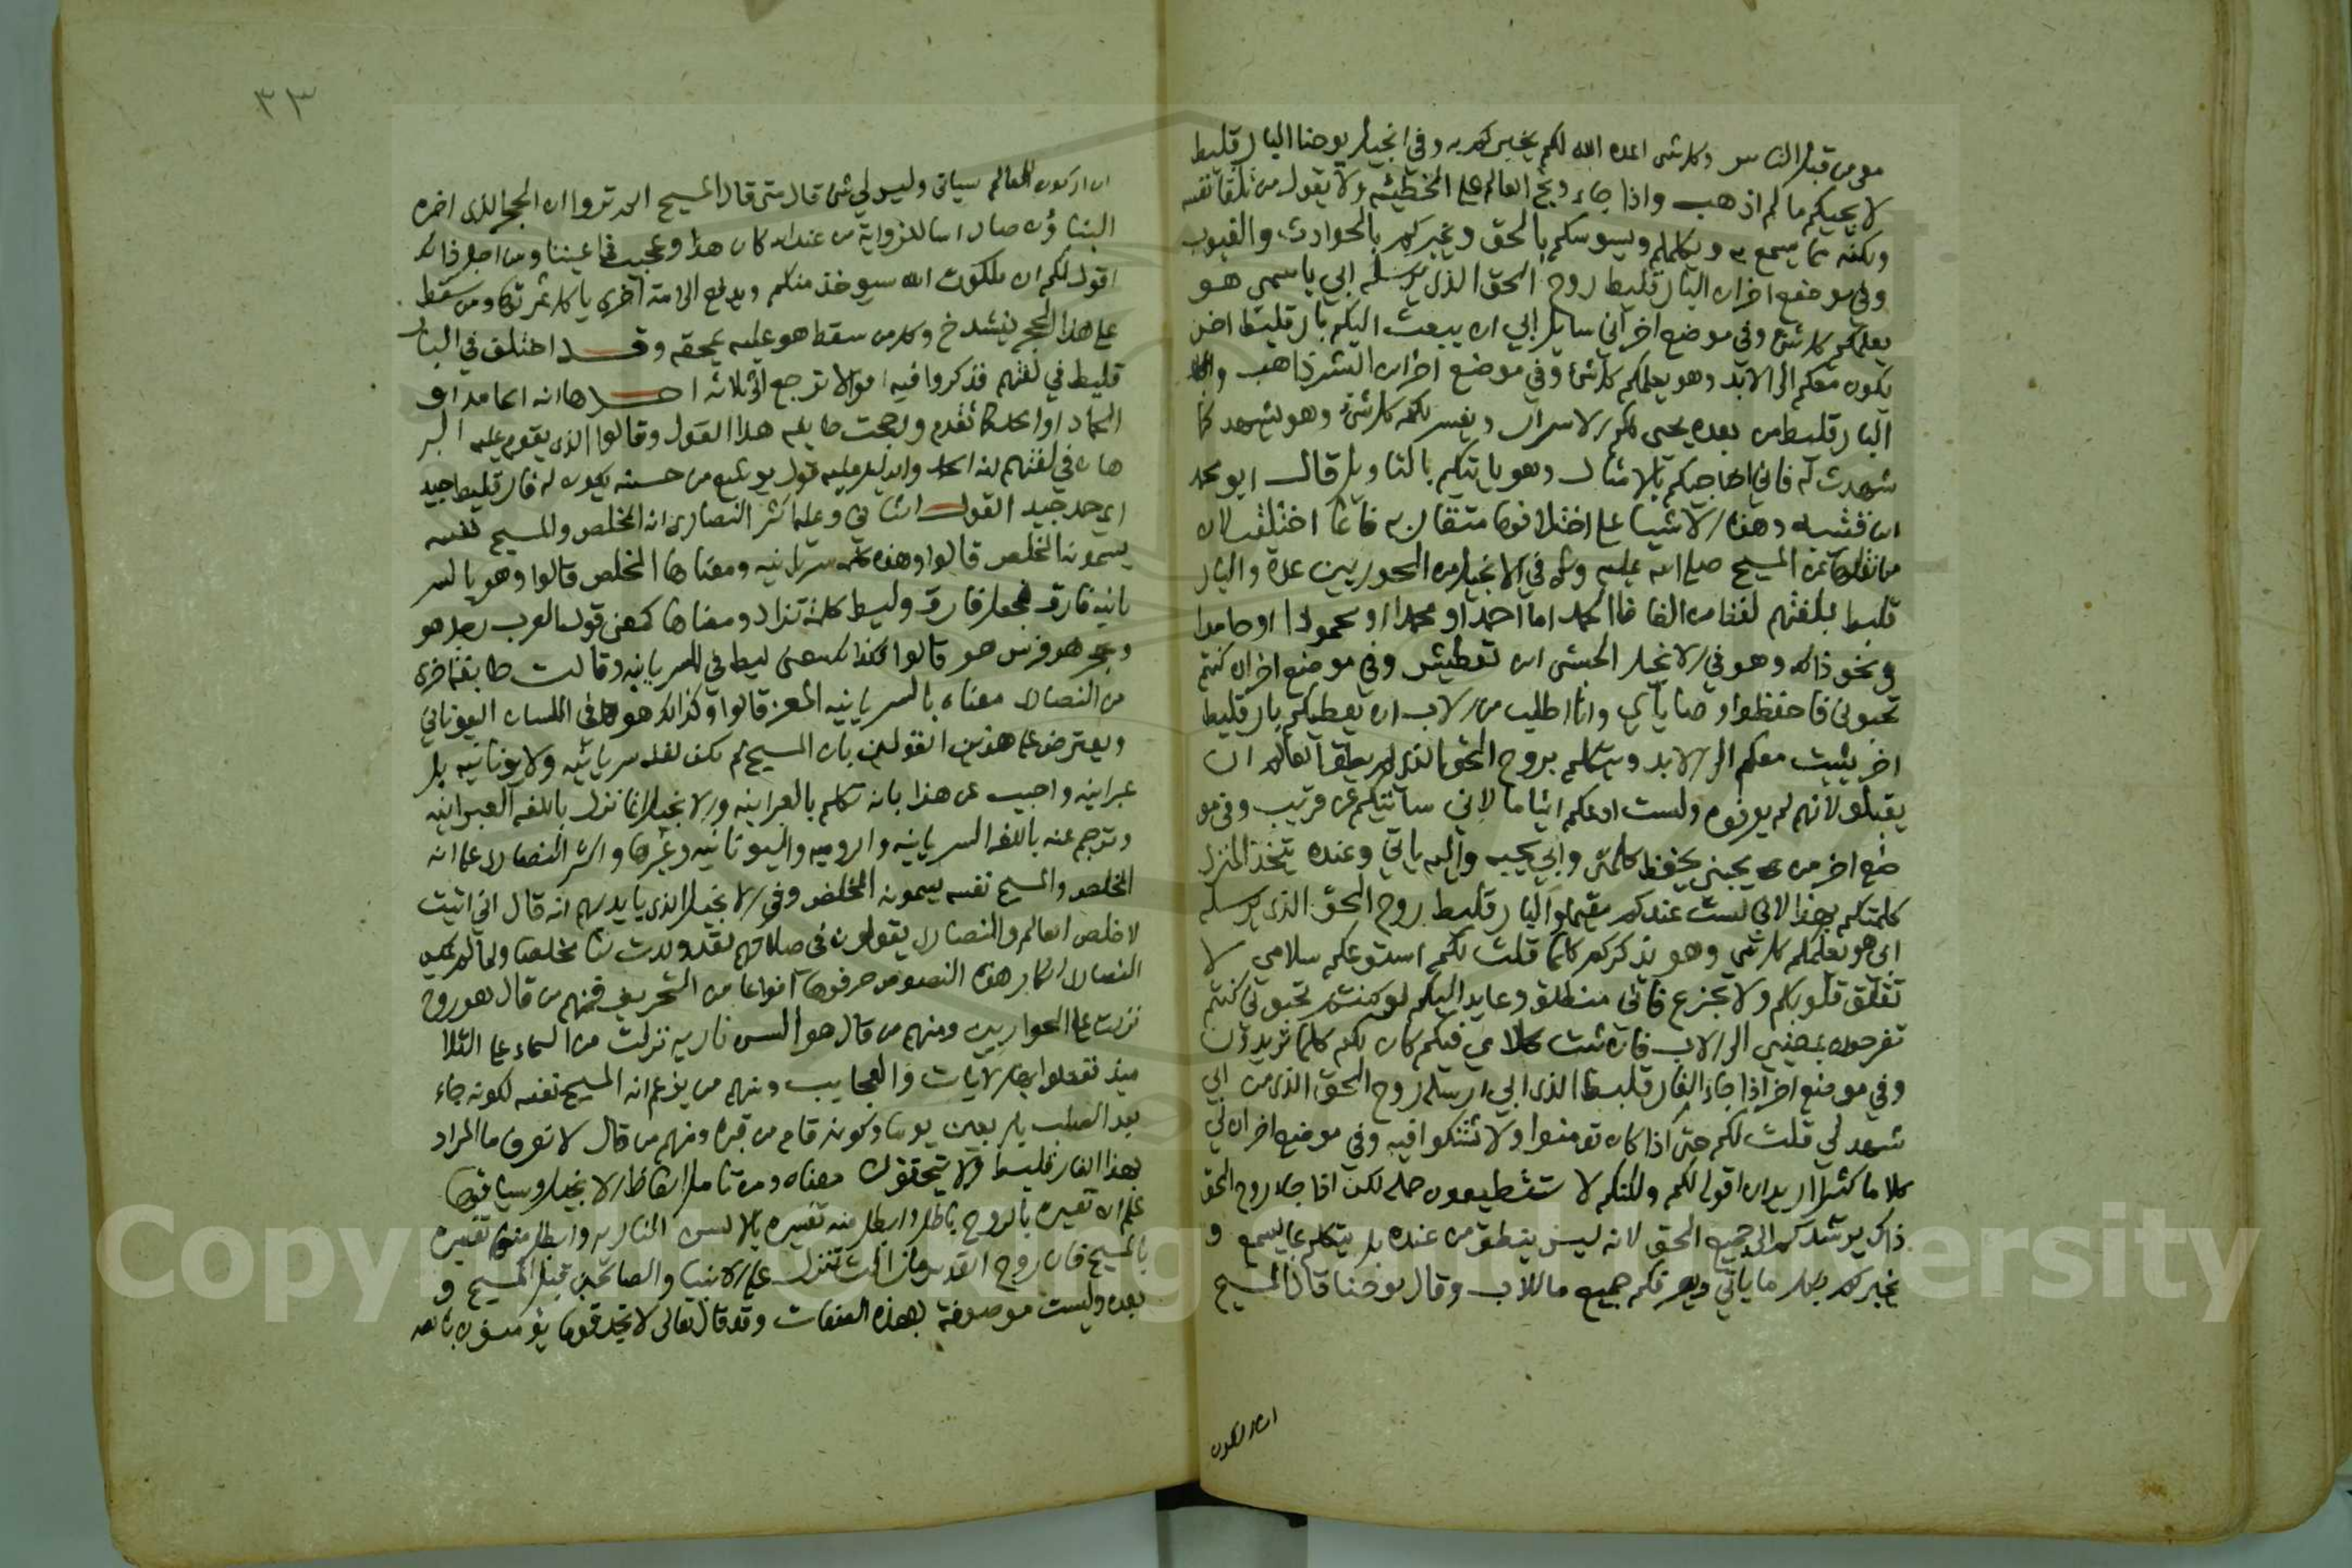 من قبل الناس وكل شي اعده الله لكم يخبركم به وفي انجيل يوحنا البارقليط
لا يجيكم ما لم اذهب واذا جاء وبخ العالم على الخطيئه ولا يقول من تلقا نفسه
ولكنه مما يسمع به ويكلمكم ويسوسكم بالحق ويخبركم بالحوادث والغيوب
وفي موضع اخر ان البارقليط روح الحق الذي يرسله ابي باسمي هو
يعلمكم كل شي وفي موضع اخر اني سايل ابي ان يبعث اليكم بارقليط اخر
يكون معكم الى الابد وهو يعلمكم كل شي وفي موضع اخر ان البشر ذاهب
البارقليط من بعده يحيى لكم الاسرار ويفسر لكم كل شي وهو يشهد كما
شهدت له فاني اجيكم بالامثال وهو ياتيكم بالتاويل قال ابو محمد
ابن قتيبه وهذه الاشيا على اختلافها متقاربه فانما اختلفت لان
من نقلها عن المسيح صلى الله عليه وسلم في الانجيل من الحوريين عدة والبار
قليط بلغتهم لفظ من الفاظ الحمد اما احمد او محمدا او محمودا او حامدا
ونحو ذلك وهو في الانجيل الحبشي ابن نعطيش وفي موضع اخر ان كنتم
تحبوني فاحفظوا وصاياي وانا اطلب من الاب ان يعطيكم بارقليط
اخر يثبت معكم الى الابد ويتكلم بروح الحق الذي لم يطق العالم ان
يقبلو لانهم لم يعرفوه ولست ادعكم ايتاما لاني ساتيكم عن قريب وفي مو
ضع اخر من يحبني يحفظ كلمتي وابي يحبه واليه ياتي وعنده يتخذ المنزل
كلمتكم بهذا لاني لست عندكم مقيما والبارقليط روح الحق الذي يرسله
ابي هو يعلمكم كل شي وهو يذكركم كلما قلت لكم استودعكم سلامي لا
تقلق قلوبكم ولا تجزع فاني منطلق وعايد اليكم لو كنتم تحبوني كنتم
تفرحون بمضيي الى الاب فان ثبت كلامي فيكم كان لكم كلما تريدون
وفي موضع اخر اذا جاء الفارقليط الذي ابي ارسله روح الحق الذي من ابي
شهد لي قلت لكم حتى اذا كان تومنوا ولا تشكوا فيه وفي موضع اخر ان لي
كلاما كثيرا اريد ان اقول لكم ولكنكم لا تستطيعون حمله لكن اذا جاء روح الحق
ذاك يرشدكم الى جميع الحق لانه ليس ينطق من عنده بل يتكلم بما يسمع و
يخبركم بكل ما ياتي ويعرفكم جميع ما للاب وقال يوحنا قال المسيح
ان اركون
٣٣
ان اركون العالم سياتي وليس لي شي قال متى قال المسيح الم تروا ان الحجر الذي اخره
البناؤن صار اسا للزواية من عند الله كان هذا وعجيب في اعيننا ومن اجل ذلك
اقول لكم ان ملكوت الله سيوخذ منكم ويدفع الى امة اخرى ياكل ثمرتها ومن سقط
على هذا الحجر ينشدخ وكل من سقط هو عليه يمحقه وقد اختلف في البار
قليط في لغتهم فذكروا فيه اقوالا ترجع الى ثلاثه احدها انه الحامد او
الحماد او الحمد كما تقدم ورجحت طايفه هذا القول وقالوا الذي يقوم عليه البر
هان في لغتهم انه الحمد والدليل عليه قول يوشع من حسنه يكون له فارقليط جيد
اي حمد جيد القول الثاني وعليه اكثر النصارى انه المخلص والمسيح نفسه
يسمونه المخلص قالوا وهذه كلمه سريانيه ومعناها المخلص قالوا وهو بالسر
يانيه فاروق فجعل فارق وليط كلمة تزاد ومعناها كمعنى قول العرب رجل هو
وحجر هو فرس هو قالوا فكذلك معنى ليط في السريانيه وقالت طايفه اخرى
من النصارى معناه بالسريانيه المعز قالوا وكذلك هو في اللسان اليوناني
ويعترض على هذين القولين بان المسيح لم يكن لغته سريانيه ولا يونانيه بل
عبرانيه واجيب عن هذا بانه تكلم بالعبرانيه والانجيل انما نزل باللغه العبرانيه
وترجم عنه باللغه السريانيه والروميه واليونانيه وغيرها واكثر النصارى على انه
المخلص والمسيح نفسه يسمونه المخلص وفي الانجيل الذي بايديهم انه قال اني اتيت
لاخلص العالم والنصارى يقولون في صلاتهم لقد ولدت لنا مخلصا ولما لم يمكن
النصارى انكار هذه النصوص حرفوها انواعا من التحريف فمنهم من قال هو روح
نزلت على الحواريين ومنهم من قال هو السن ناريه نزلت من السماء على التلا
ميذ ففعلوا بها الايات والعجايب ومنهم من يزعم انه المسيح نفسه لكونه جاء
بعد الصلب باربعين يوما وكونه قام من قبره ومنهم من قال لا نعرف ما المراد
بهذا الفارقليط ولا يتحقق لنا معناه ومن تامل الفاظ الانجيل وسياقها
علم ان تفسيره بالروح باطل وابطل منه تفسيره بالالسن الناريه وابطل منها تفسيره
بالمسيح فان روح القدس ما زالت تنزل على الانبيا والصالحين قبل المسيح و
بعده وليست موصوفة بهذه الصفات وقد قال تعالى لا تجد قوما يؤمنون بالله